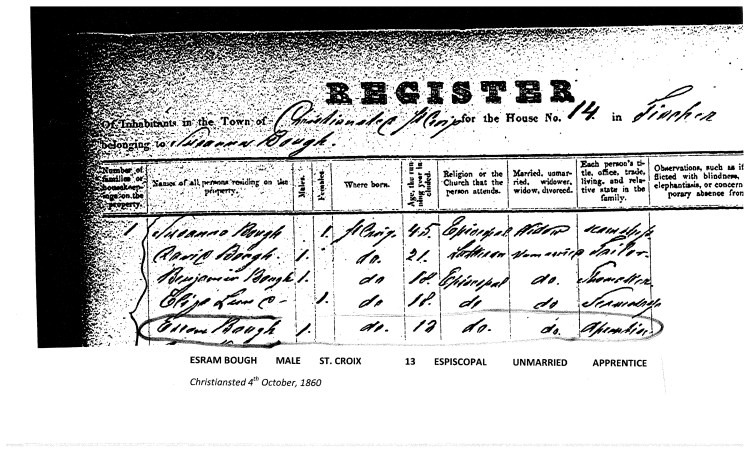 REGISTER
Of Inhabitants in the Town of Christiansted St Croix for the House No. 14. in Fischer
belonging to Susanna Bough.
Number of families or housekeepings on the property. Names of all persons residing on the property. Males. Females. Where born. Age, the running year included. Religion or the Church that the person attends. Married, unmarried, widower, widow, divorced. Each person's title, office, trade, living, and relative state in the family. Observations, such as if flicted with blindness, elephantiasis, or concern porary absence from
1 Susanna Bough 1. St Croix 45 Episcopal Widow
David Bough 1. do. 21. Lutheran unmarried Tailor
Benjamin Bough 1. do 18. Episcopal do.
Eliza 1. do 18. do do
Esram Bough 1. do. 13 do. do.
ESRAM BOUGH MALE ST. CROIX 13 ESPISCOPAL UNMARRIED APPRENTICE
Christiansted 4th October, 1860